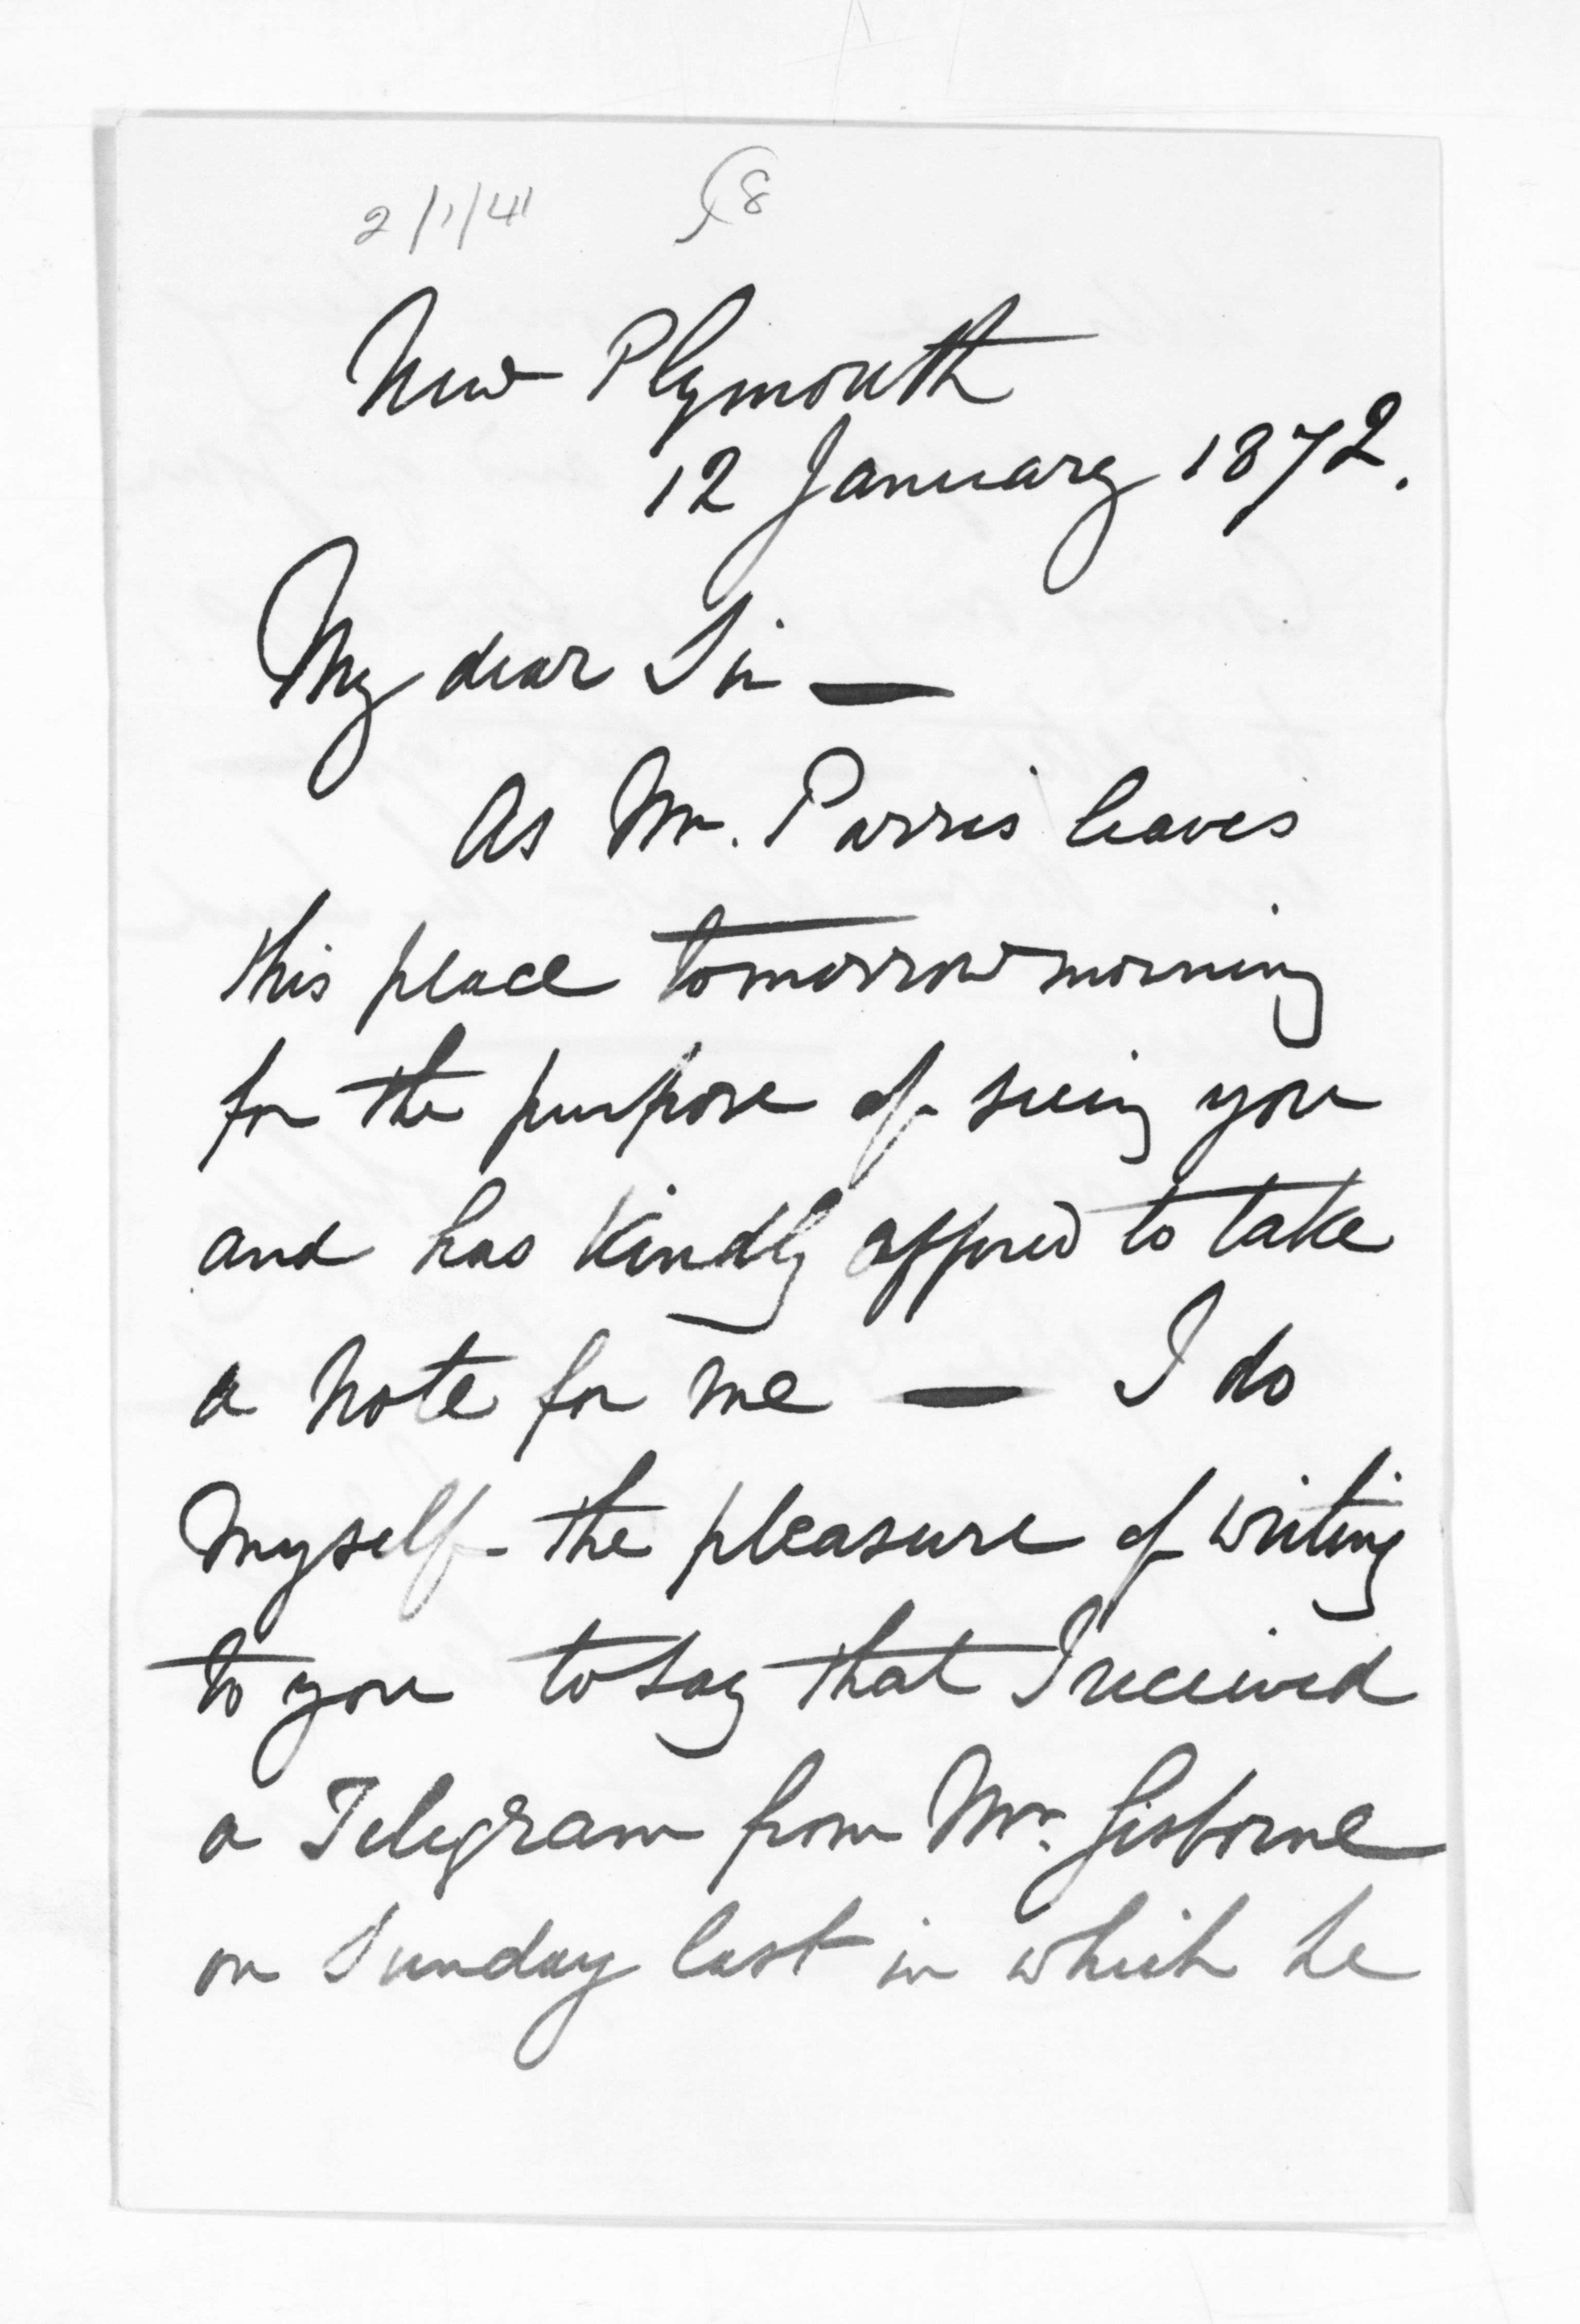 2/1/41 58
New Plymouth
12 January 1872.
My dear Sir —
As Mr. Parris leaves
this place tomorrow morning
for the purpose of seeing you
and has kindly offered to take
a note for me — I do
myself the pleasure of writing
to you to say that I received
a Telegram from Mr. Gisborne
on Sunday last in which he